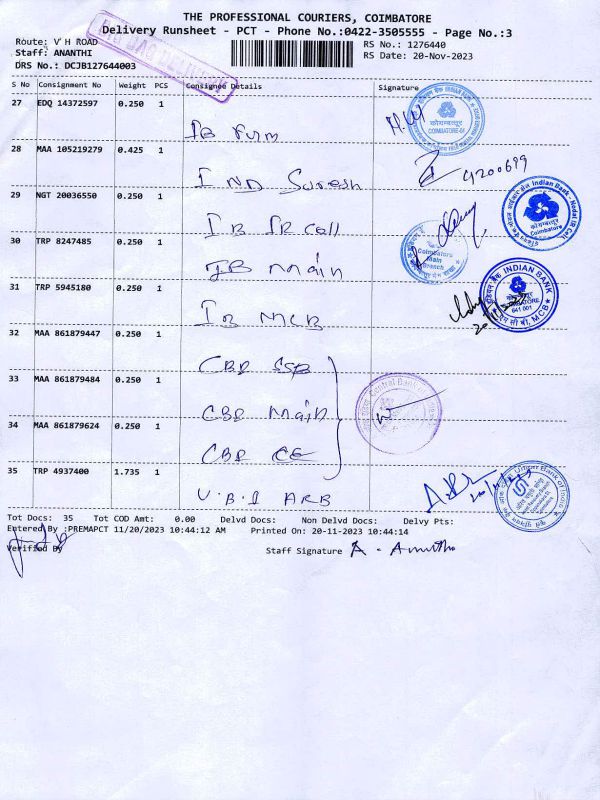 THE PROFESSIONAL COURIERS, COIMBATORE
Delivery Runsheet - PCT - Phone No.:0422-3505555 - Page No.:3
Route: V H ROAD
RS No.: 1276440
Staff: ANANTHI
RS Date: 20-Nov-2023
DRS No.: DCJB127644003
S No Consignment No Weight PCS Consignee Details Signature
27 EDQ 14372597 0.250 1
IB Firm
कोयम्बत्तूर
COIMBATORE
28 MAA 105219279 0.425 1
IND Suresh
4200699
29 NGT 20036550 0.250 1
IB IR Call
Indian Bank
Coimbatore
30 TRP 8247485 0.250 1
IB Main
Coimbatore
Main
Branch
31 TRP 5945180 0.250 1
IB MCB
INDIAN BANK
641 001
MCB
32 MAA 861879447 0.250 1
CBI SSB
33 MAA 861879484 0.250 1
CBI Main
Central Bank of
34 MAA 861879624 0.250 1
CBI CE
35 TRP 4937400 1.735 1
U.B.I ARB
Union Bank of India
Tot Docs: 35 Tot COD Amt: 0.00 Delvd Docs: Non Delvd Docs: Delvy Pts:
Entered By :PREMAPCT 11/20/2023 10:44:12 AM Printed On: 20-11-2023 10:44:14
Verified By
Staff Signature A. Anantha